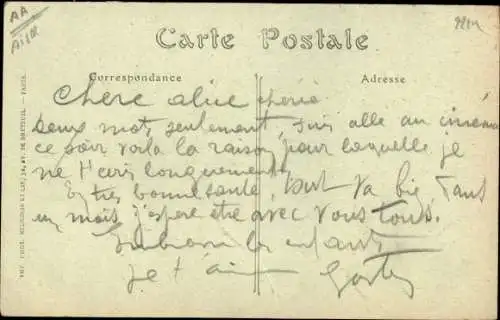 AA
Carte Postale
Correspondance
Adresse
Chere alice cherie
deux mots seulement, suis allé au cinéma
ce soir voila la raison pour laquelle je
ne t'ecris longuement
En tres bonne santé, tout va bien, dans
un mois j'espere etre avec vous tous.
Embrasse les enfants
Je t'aime